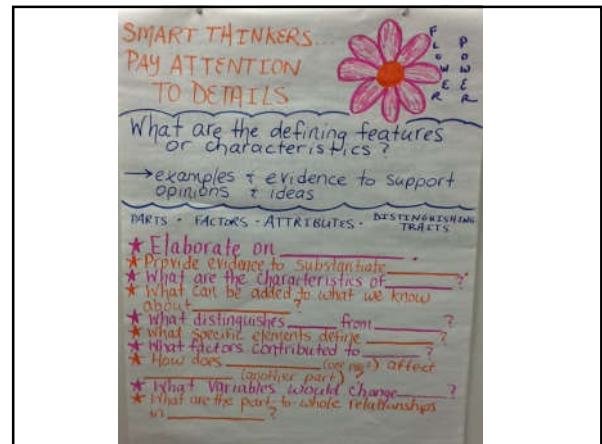 SMART THINKERS...
PAY ATTENTION
TO DETAILS
FLOWER
POWER
What are the defining features
or characteristics?
→examples & evidence to support
opinions & ideas
PARTS · FACTORS · ATTRIBUTES · DISTINGUISHING
TRAITS
★ Elaborate on ____________.
★ Provide evidence to substantiate ________.
★ What are the characteristics of ________?
★ What can be added to what we know
about ________?
★ What distinguishes ______ from ______?
★ What specific elements define ________?
★ What factors contributed to ________?
★ How does ________ (one part) affect
________ (another part)?
★ What variables would change ______?
★ What are the part-to-whole relationships
in ____________?